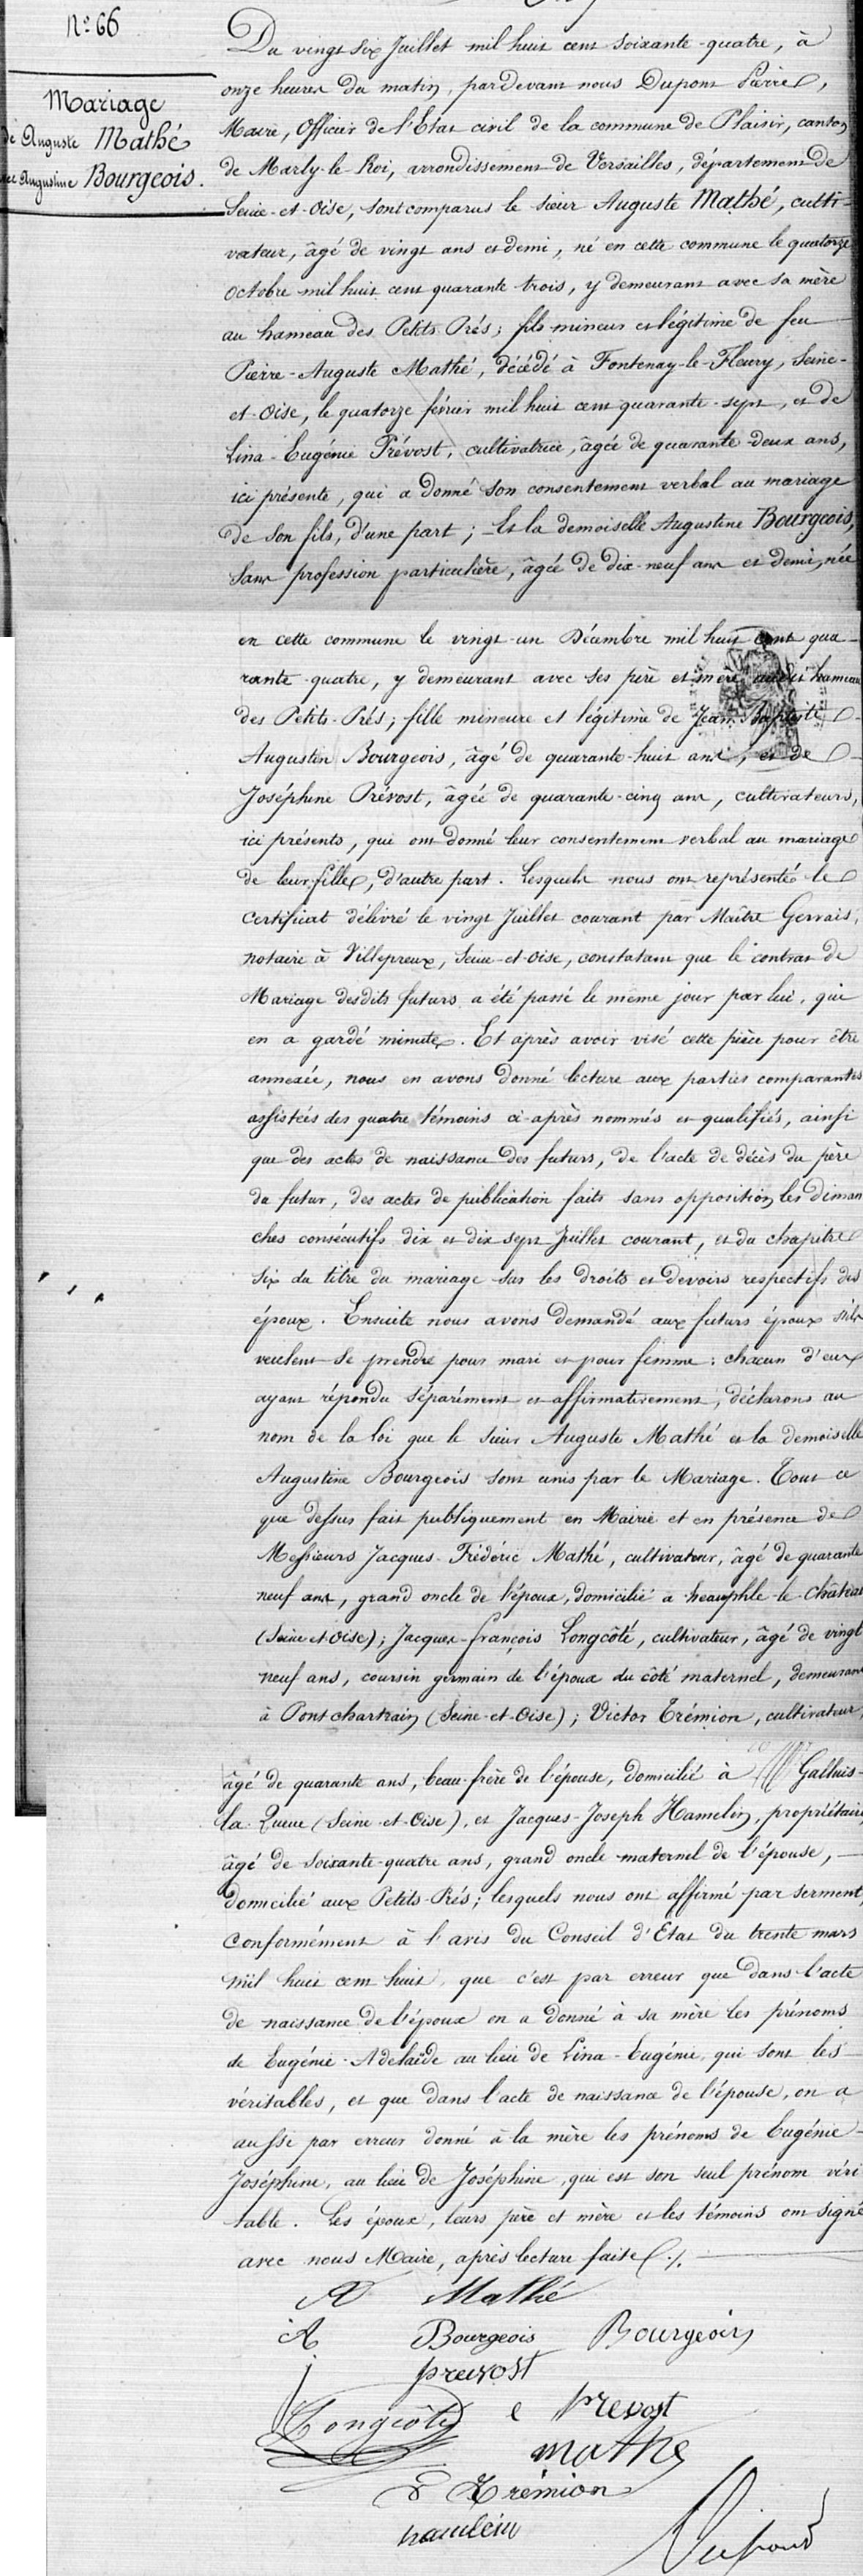 N.° 66
Mariage
de Auguste Mathé
avec Augustine Bourgeois.
Du vingt six Juillet mil huit cent soixante-quatre, à
onze heures du matin, pardevant nous Dupont Pierre,
Maire, Officier de l'Etat civil de la commune de Plaisir, canton
de Marly-le-Roi, arrondissement de Versailles, département de
Seine-et-Oise, sont comparus le sieur Auguste Mathé, culti-
vateur, âgé de vingt ans et demi, né en cette commune le quatorze
octobre mil huit cent quarante trois, y demeurant avec sa mère
au hameau des Petits Prés; fils mineur et légitime de feu
Pierre-Auguste Mathé, décédé à Fontenay-le-Fleury, Seine-
et-Oise, le quatorze février mil huit cent quarante-sept, et de
Lina-Eugénie Prévost, cultivatrice, âgée de quarante-deux ans,
ici présente, qui a donné son consentement verbal au mariage
de son fils, d'une part; _ Et la demoiselle Augustine Bourgeois,
sans profession particulière, âgée de dix-neuf ans et demi, née
en cette commune le vingt-un Décembre mil huit cent qua-
rante-quatre, y demeurant avec ses père et mère audit hameau
des Petits-Prés; fille mineure et légitime de Jean-Baptiste
Augustin Bourgeois, âgé de quarante-huit ans, et de
Joséphine Prévost, âgée de quarante-cinq ans, cultivateurs,
ici présents, qui ont donné leur consentement verbal au mariage
de leur fille, d'autre part. Lesquels nous ont représenté le
certificat délivré le vingt Juillet courant par Maître Gervais,
notaire à Villepreux, Seine-et-Oise, constatant que le contrat de
Mariage desdits futurs a été passé le même jour par lui, qui
en a gardé minute. Et après avoir visé cette pièce pour être
annexée, nous en avons donné lecture aux parties comparantes
assistées des quatre témoins ci-après nommés et qualifiés, ainsi
que des actes de naissance des futurs, de l'acte de décès du père
du futur, des actes de publication faits sans opposition les diman
ches consécutifs dix et dix sept Juillet courant, et du chapitre
six du titre du mariage sur les droits et devoirs respectifs des
époux. Ensuite nous avons demandé aux futurs époux s'ils
veulent se prendre pour mari et pour femme: chacun d'eux
ayant répondu séparément et affirmativement, déclarons au
nom de la loi que le sieur Auguste Mathé et la demoiselle
Augustine Bourgeois sont unis par le Mariage. Tout ce
que dessus fait publiquement en Mairie et en présence de
Messieurs Jacques-Frédéric Mathé, cultivateur, âgé de quarante
neuf ans, grand oncle de l'époux, domicilié a Neauphle-le-Château
(Seine et Oise); Jacques-françois Longcôté, cultivateur, âgé de vingt
neuf ans, coursin germain de l'époux du côté maternel, demeurant
à Pontchartrain (Seine-et-Oise); Victor Trémion, cultivateur,
âgé de quarante ans, beau-frère de l'épouse, domicilié à Galluis-
la-Queue (Seine-et-Oise), et Jacques-Joseph Hamelin, propriétaire,
âgé de soixante-quatre ans, grand oncle maternel de l'épouse,
domicilié aux Petits-Prés; lesquels nous ont affirmé par serment,
conformément à l'avis du Conseil d'Etat du trente mars
mil huit cent huit, que c'est par erreur que dans l'acte
de naissance de l'époux on a donné à sa mère les prénoms
de Eugénie-Adelaïde au lieu de Lina-Eugénie, qui sont les
véritables, et que dans l'acte de naissance de l'épouse, on a
aussi par erreur donné à la mère les prénoms de Eugénie-
Joséphine, au lieu de Joséphine, qui est son seul prénom véri
table. Les époux, leurs père et mère et les témoins ont signé
avec nous Maire, après lecture faite ./.
A Mathé
A Bourgeois Bourgeois
j prevost
Longcôté e prevost
mathé
Trémion
hamlein
Dupont